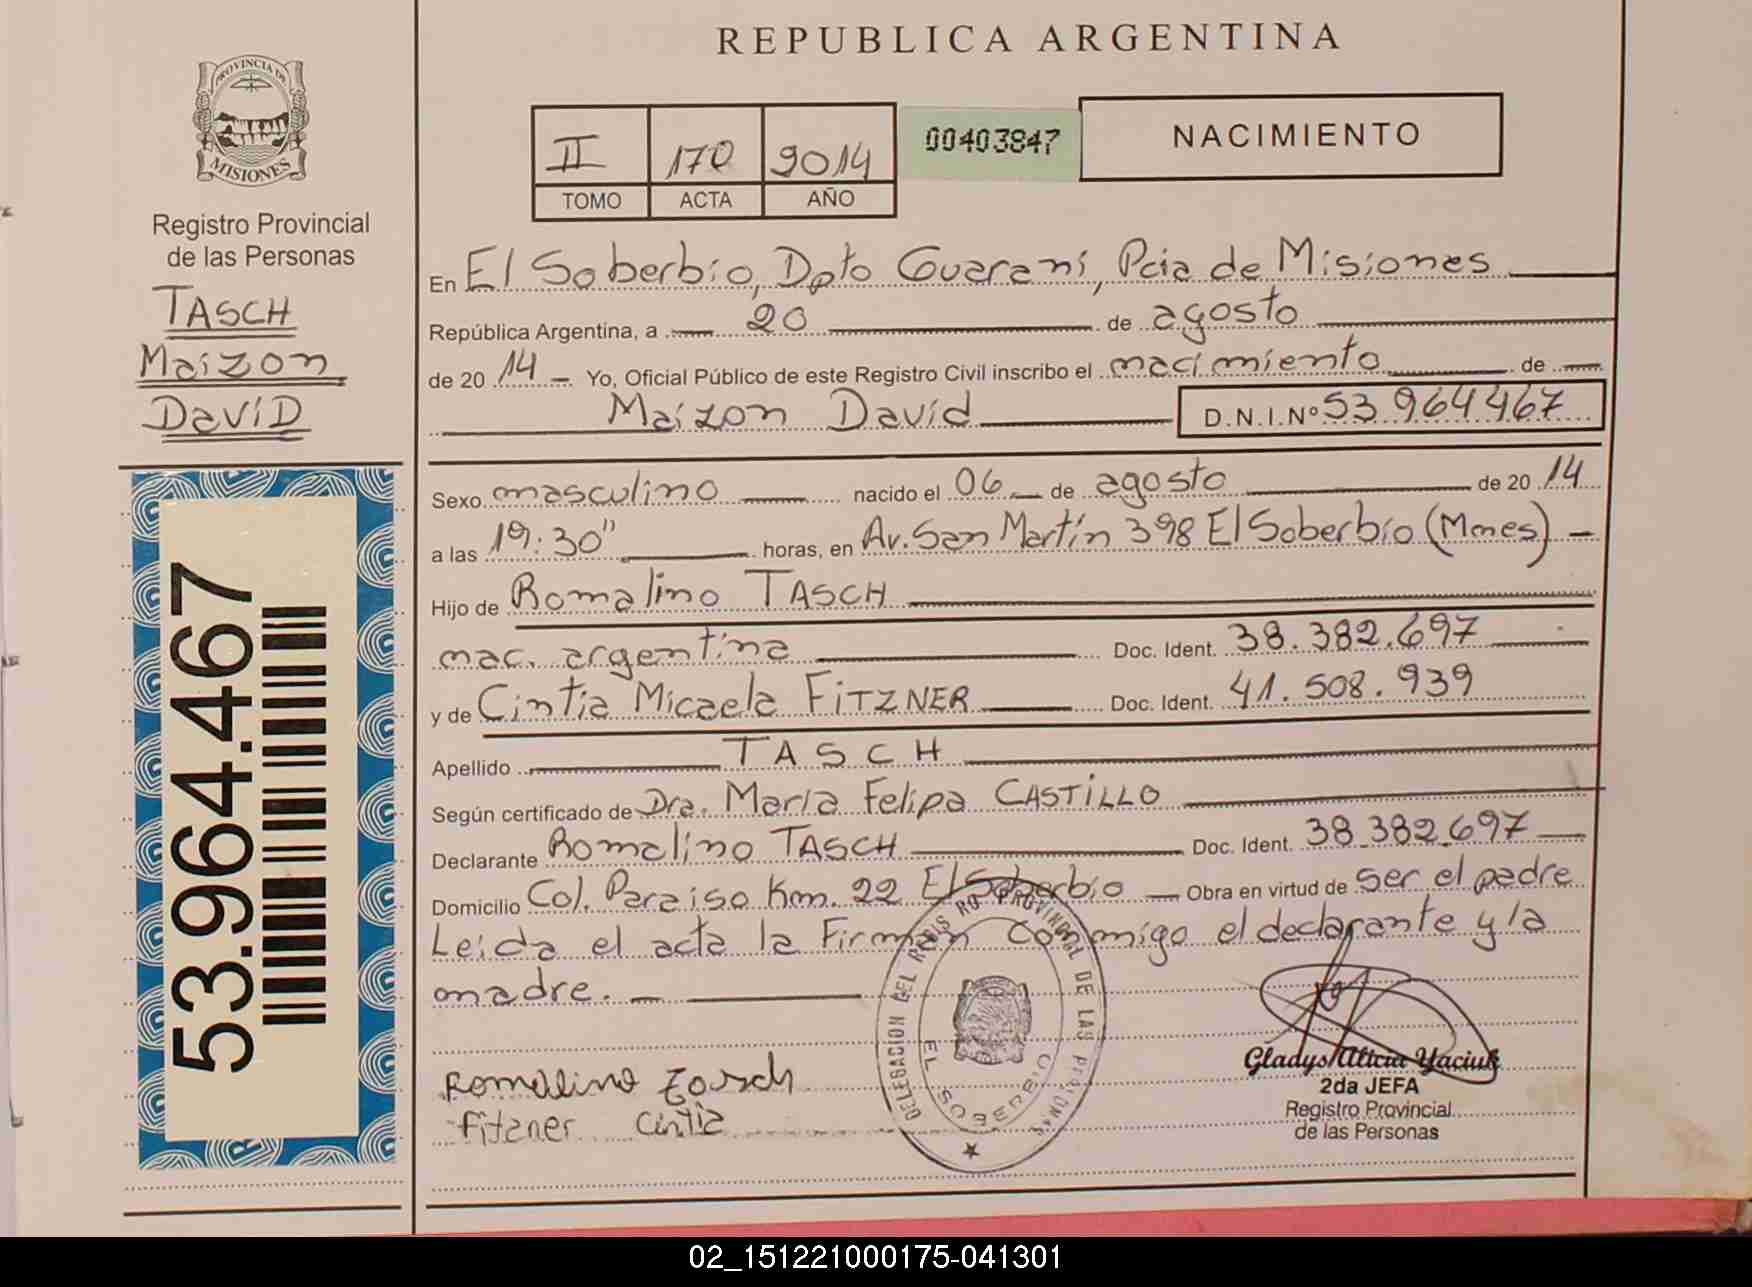 PROVINCIA DE
MISIONES
Registro Provincial
de las Personas
TASCH
Maizon
DaviD
53.964.467
REPUBLICA ARGENTINA
II 170 2014
TOMO ACTA AÑO
00403847
NACIMIENTO
En El Soberbio, Dpto Guaraní, Pcia de Misiones
República Argentina, a 20 de agosto
de 20 14 - Yo, Oficial Público de este Registro Civil inscribo el nacimiento de
Maizon David D.N.I.Nº 53.964467
Sexo masculino nacido el 06 de agosto de 20 14
a las 19:30" horas, en Av. San Martín 398 El Soberbio (Mnes) -
Hijo de Romalino TASCH
nac. argentina Doc. Ident. 38.382.697
y de Cintia Micaela FiTZNER Doc. Ident. 41.508.939
Apellido TASCH
Según certificado de Dra. María Felipa CASTiLLO
Declarante Romalino TASCH Doc. Ident. 38.382.697
Domicilio Col. Paraiso Km. 22 El Soberbio - Obra en virtud de ser el padre
Leida el acta la Firman conmigo el declarante y la
madre. -
DELEGACION DEL REGIS RO PROVINCIAL DE LAS PERSONAS
EL SOBERBIO
Romalino Tasch
Fitzner Cintia
Gladys Alicia Yaciuk
2da JEFA
Registro Provincial
de las Personas
02_151221000175-041301